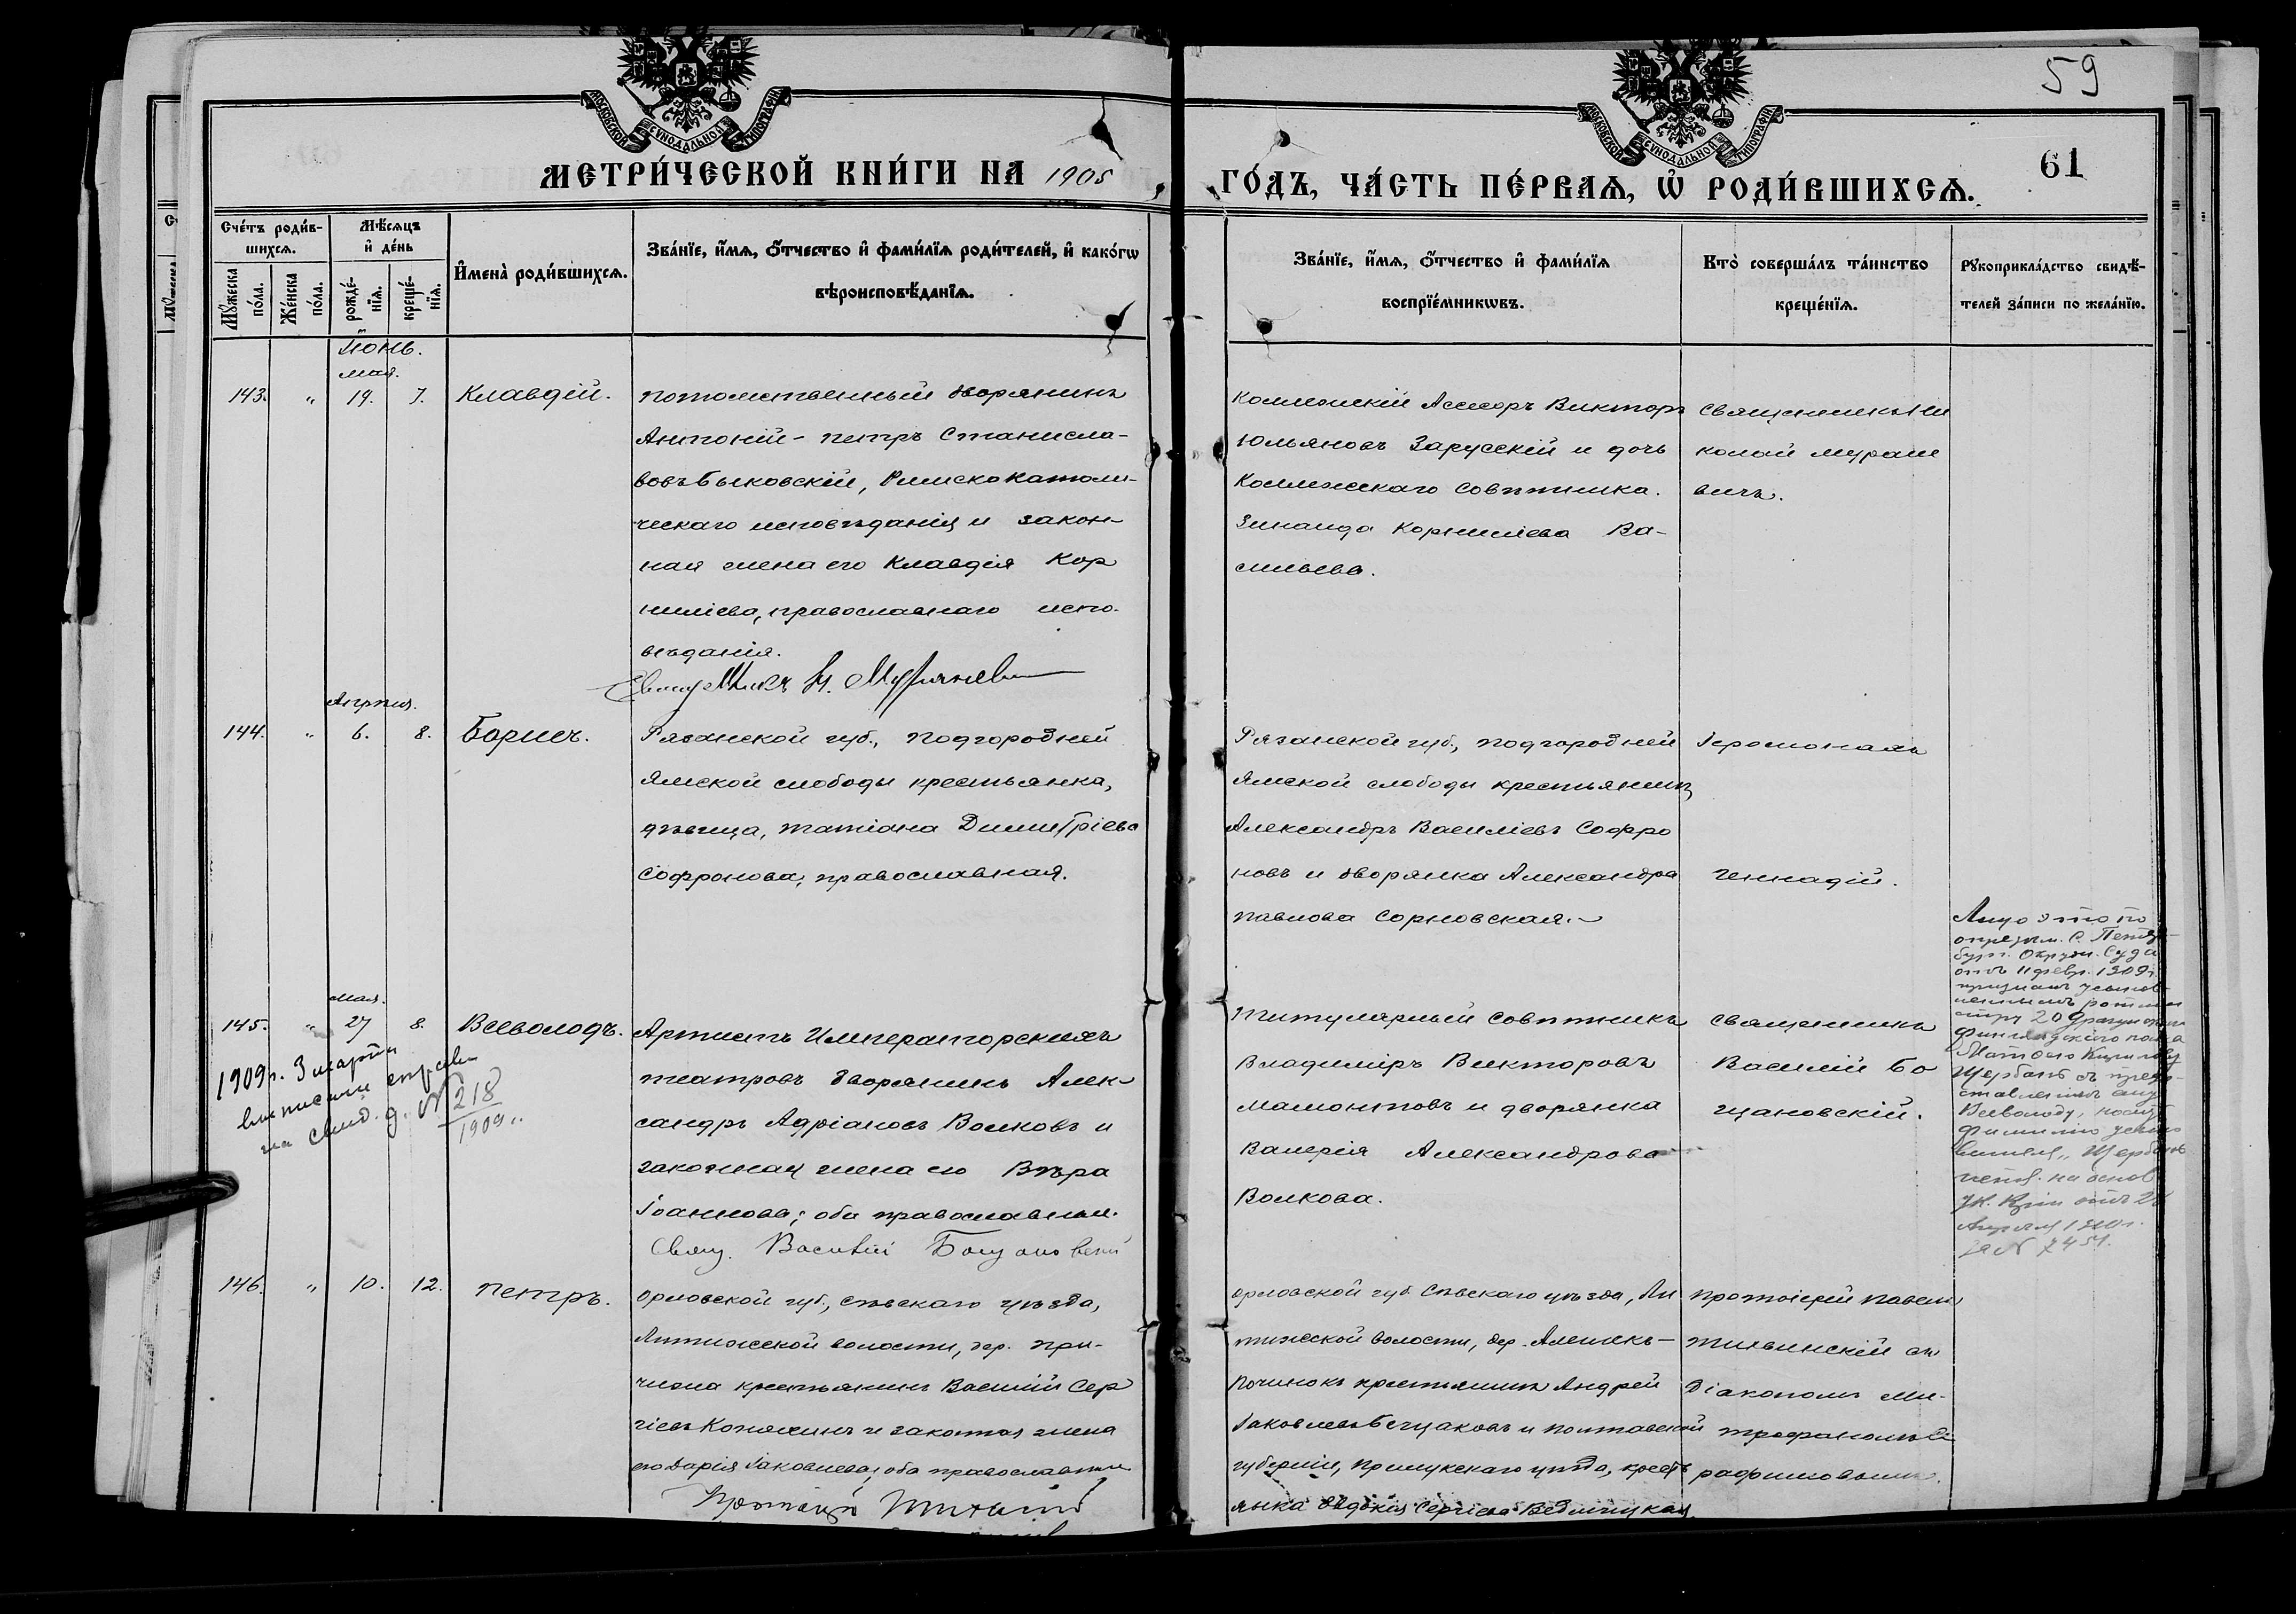 59
61
МОСКОВСКОЙ СѴНОДАЛЬНОЙ ТИПОГРАФІИ
МОСКОВСКОЙ СѴНОДАЛЬНОЙ ТИПОГРАФІИ
МЕТРИ́ЧЕСКОЙ КНИ́ГИ НА 1905
ГО́ДЪ, ЧА́СТЬ ПЕ́РВАѦ, Ѡ҆ РОДИ́ВШИХСѦ.
Сче́тъ роди́в-
шихсѧ.
Мꙋ́жеска по́ла.
Же́нска по́ла.
Мѣ́сѧцъ
и҆ де́нь
рожде́-нїѧ.
креще́-нїѧ.
И҆мена̀ роди́вшихсѧ.
Зва́нїе, и҆́мѧ, ѻ҆́тчество и҆ фами́лїѧ роди́телей, и҆ како́гѡ
вѣроисповѣ́данїѧ.
Зва́нїе, и҆́мѧ, ѻ҆́тчество и҆ фами́лїѧ
воспрїе́мникѡвъ.
Кто̀ соверша́лъ та́инство
креще́нїѧ.
Рꙋкоприкла́дство свидѣ́-
телей за́писи по жела́нїю.
Іюнь.
мая.
143. " 19. 7. Клавдій.
потомственный дворянинъ
Антоній - петръ Станисла-
вовъ Быковскій, Римско Католи-
ческаго исповѣданія и закон-
ная жена его Клавдія Кор
ниліева, православнаго испо-
вѣданія.
Коллежскій Ассесоръ Викторъ
Юльяновъ Зарусскій и дочь
Коллежскаго Совѣтника.
Зинаида Корниліева Ва-
сильева.
Священникъ Ни
колай Мураше
вичъ.
Апрѣля.
144. " 6. 8. Борисъ.
Рязанской губ., подгородней
Ямской слободы крестьянка,
дѣвица, татіана Димитріева
Софронова, православная.
Рязанской губ., подгородней
Ямской слободы крестьянинъ
Александръ Василіевъ Софро
новъ и дворянка Александра
павлова Сорновская.
Іеромонахъ
Геннадій.
мая.
145. " 27 8. Всеволодъ.
1909 г. 3 марта
выписана справка
на свид. д. № 218
1909 г.
Артистъ Императорскихъ
театровъ дворянинъ Алек-
сандръ Адріановъ Волковъ и
законная жена его Вѣра
Іоаннова; оба православные.
Свящ. Василій Богдановскій
титулярный совѣтникъ
Владиміръ Викторовъ
Мамонтовъ и дворянка
Валерія Александрова
Волкова.
священникъ
Василій Бо
гдановскій.
Лицо это по
опредѣл. С. Петер-
бург. Окружн. Суда
отъ 11 февр. 1909 г.
признанъ усынов-
леннымъ ротми
стру 20 драгунскаго
Финляндскаго полка
Щербакъ съ предо-
ставленіемъ ему
Всеволоду, носить
фамилію усыно
вителя, Щербакъ
Апрѣля 1910 г.
за № 7454.
146. " 10. 12. петръ.
Орловской губ., Сѣвскаго уѣзда,
Литижской волости, дер. При-
крестьянинъ Василій Сер
гіевъ и законная жена
его Дарія Іаковлева, оба православные
Протоіерей
Орловской губ Сѣвскаго уѣзда, Ли
тижской волости, дер. Алешекъ-
Починокъ крестьянинъ Андрей
Іаковлевъ и Полтавской
губерніи, Прилукскаго уѣзда, кресть
янка Евдокія Сергіева
протоіерей павелъ
съ
Діакономъ Ми-
трофаномъ Се
рафимовымъ.